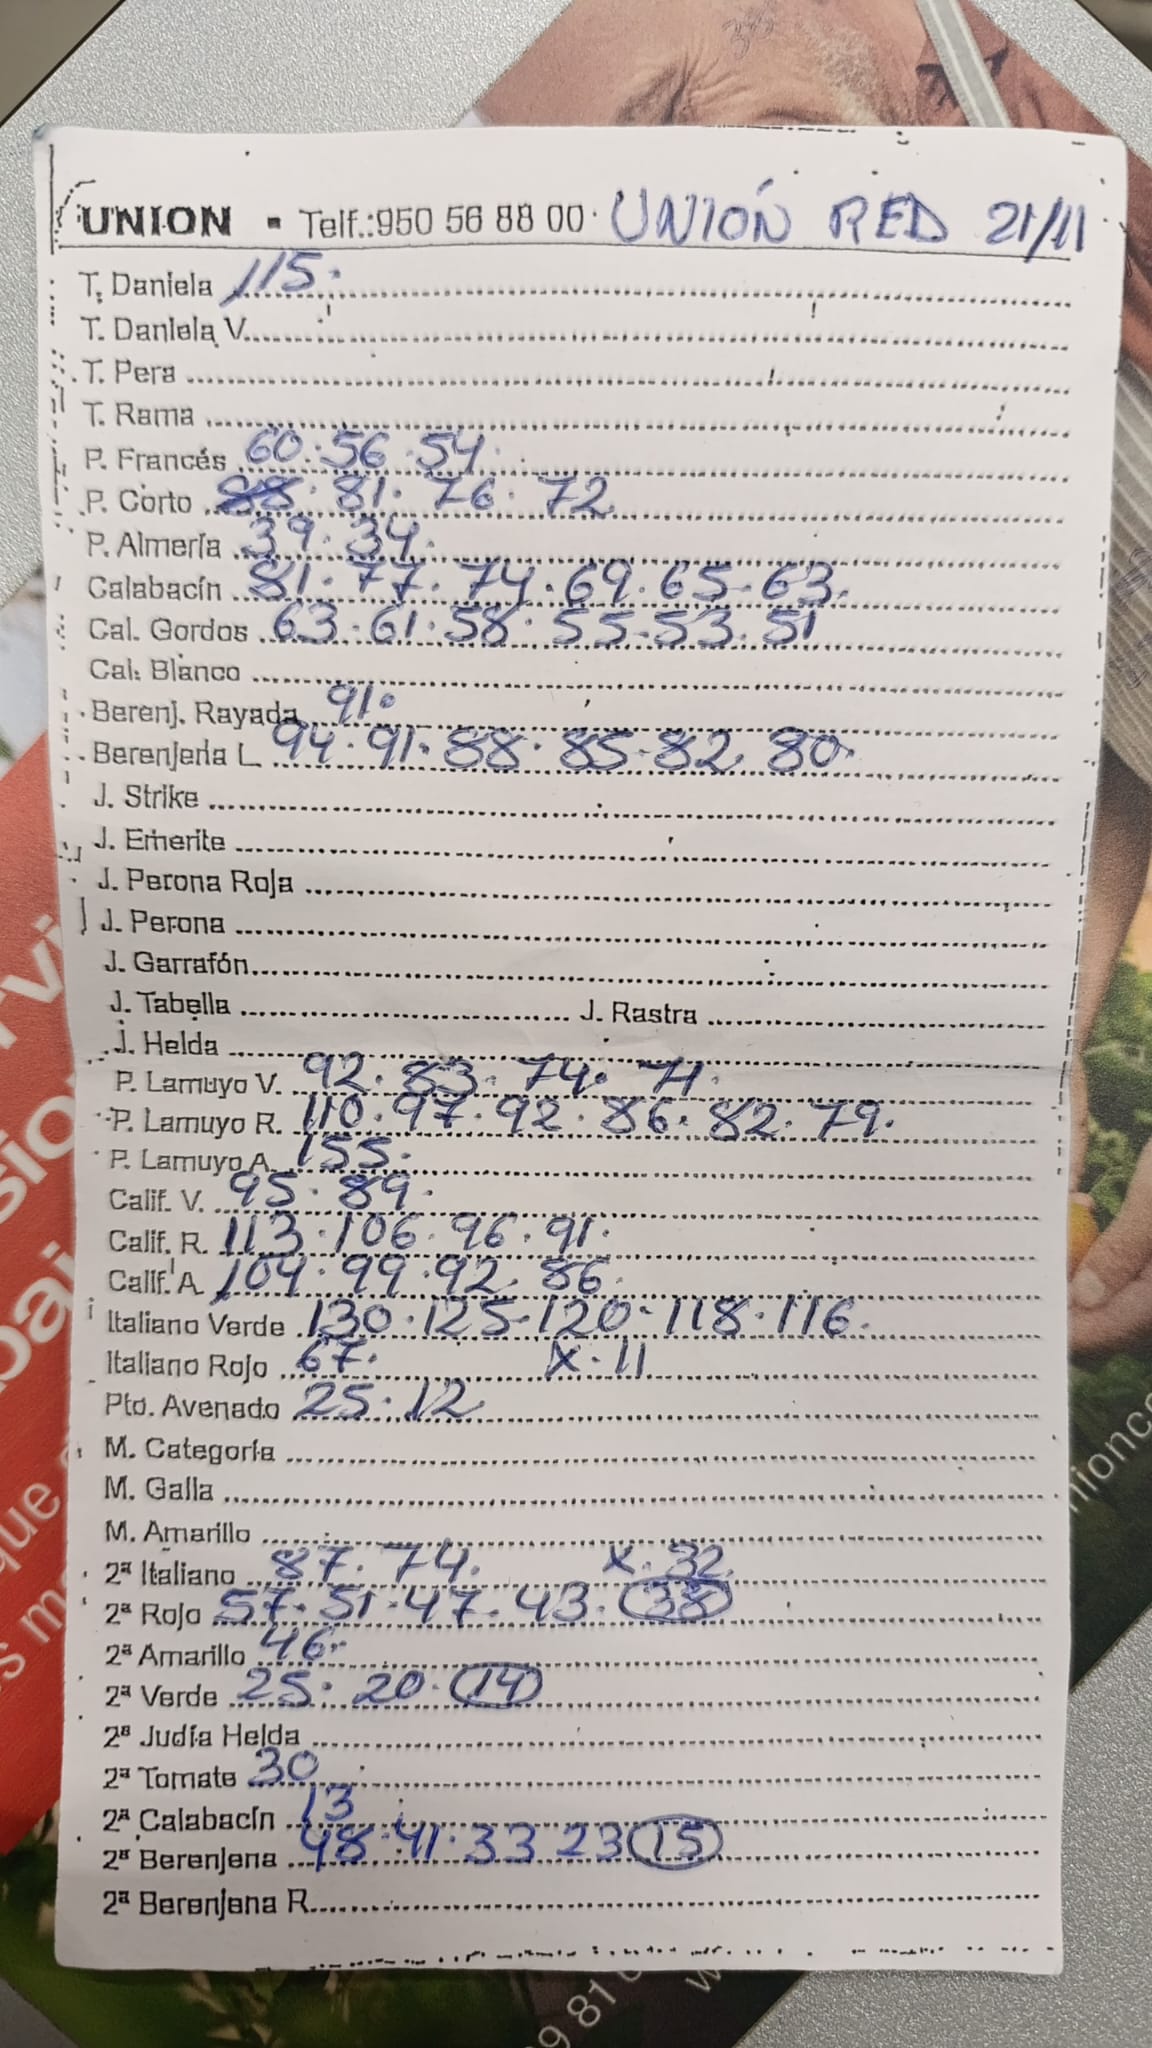 UNION ▪ Telf.:950 56 88 00 UNIÓN RED 21/11
T. Daniela 115.
T. Daniela V.
T. Pera
T. Rama
P. Francés 60.56.54.
P. Corto 88.81.76.72
P. Almería 39.34.
Calabacín 81.77.74.69.65.63.
Cal. Gordos 63.61.58.55.53.51
Cal. Blanco
Berenj. Rayada 91.
Berenjena L 94.91.88.85.82.80.
J. Strike
J. Emerite
J. Perona Roja
J. Perona
J. Garrafón
J. Tabella J. Rastra
J. Helda
P. Lamuyo V. 92.83.74.71.
P. Lamuyo R. 110.97.92.86.82.79.
P. Lamuyo A. 155.
Calif. V. 95.89.
Calif. R. 113.106.96.91.
Calif. A. 104.99.92.86.
Italiano Verde 130.125.120.118.116.
Italiano Rojo 67. X.11
Pto. Avenado 25.12
M. Categoría
M. Galia
M. Amarillo
2ª Italiano 87.74. X.32.
2ª Rojo 57.51.47.43.38
2ª Amarillo 46.
2ª Verde 25.20.14
2ª Judía Helda
2ª Tomate 30
2ª Calabacín 13
2ª Berenjena 48.41.33 23 15
2ª Berenjena R.